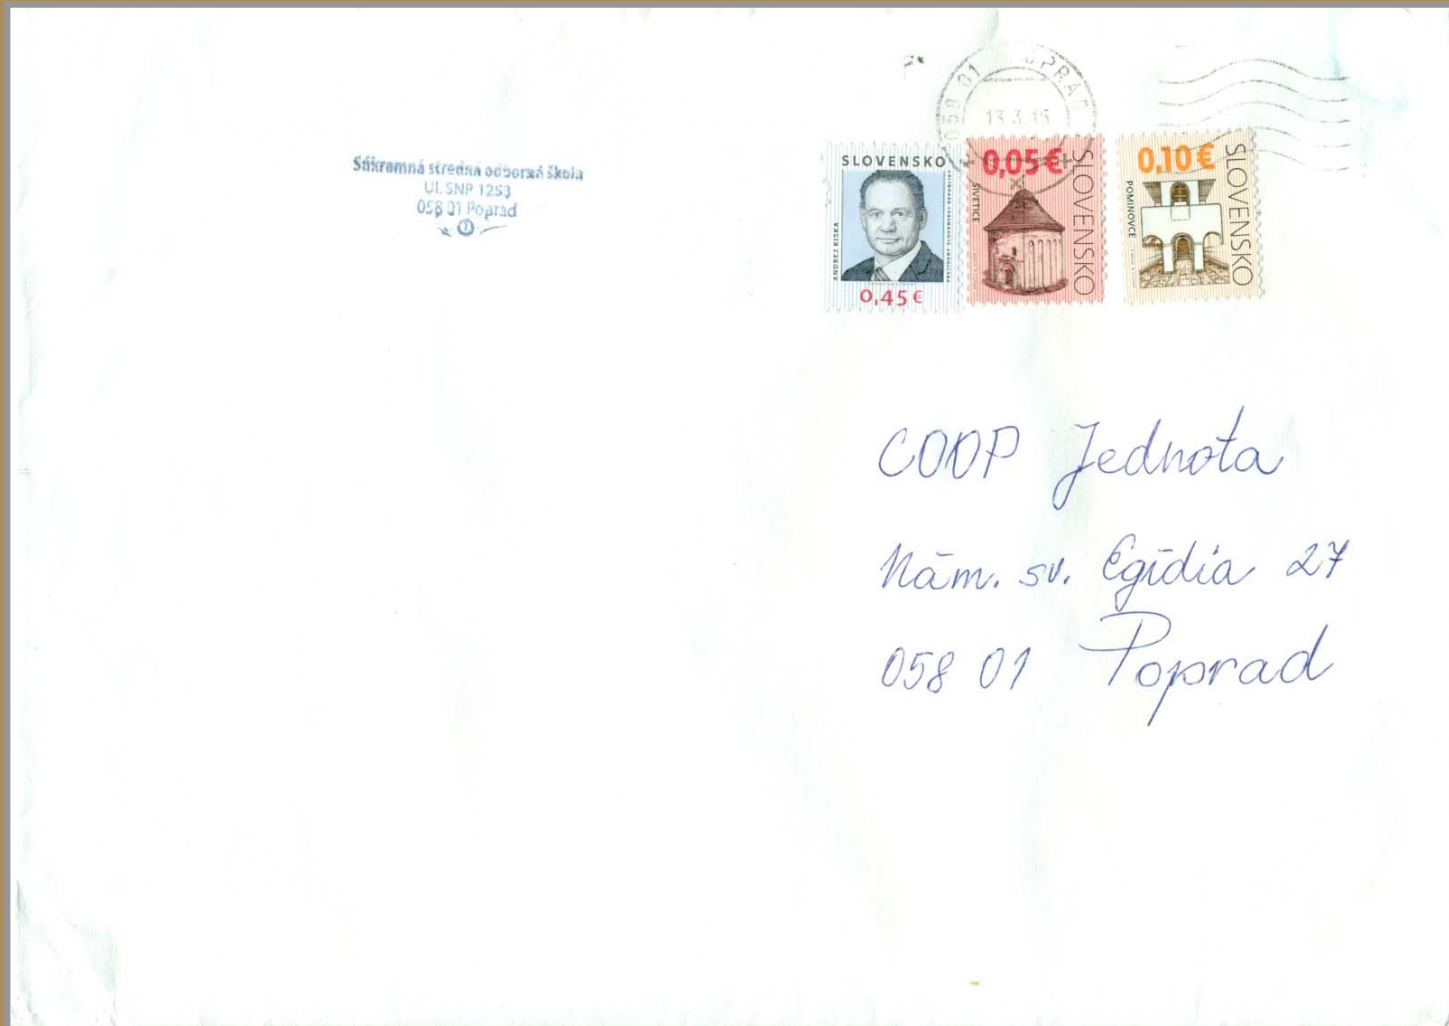 Súkromná stredná odborná škola
Ul. SNP 1253
058 01 Poprad
058 01 POPRAD
13.3.15
SLOVENSKO
ANDREJ KISKA
PREZIDENT SLOVENSKEJ REPUBLIKY
0,45 €
0,05 €
ŠIVETICE
SLOVENSKO
0,10 €
POMINOVCE
SLOVENSKO
COOP Jednota
Nám. sv. Egídia 27
058 01 Poprad